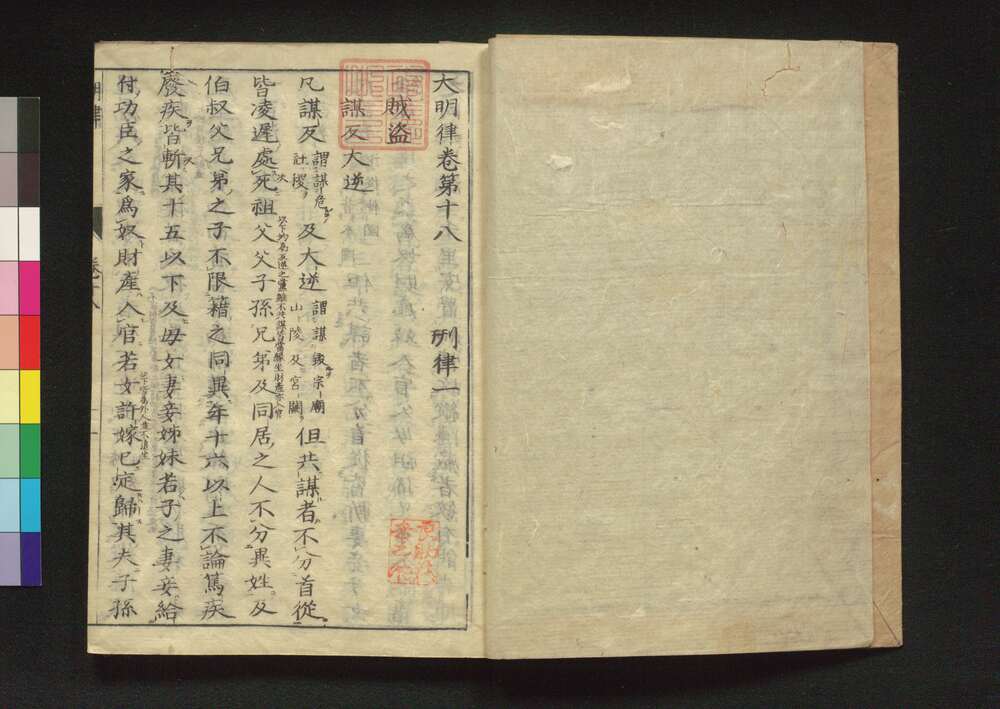 大明律卷第十八 刑律一
賊盜
謀反大逆
凡謀反 謂謀危社稷 及大逆 謂謀毀宗廟山陵及宮闕 但共謀者不分首從
皆凌遲處死祖父父子孫兄弟及同居之人不分異姓及
伯叔父兄弟之子不限籍之同異年十六以上不論篤疾
廢疾皆斬其十五以下及母女妻妾姊妹若子之妻妾給
付功臣之家爲奴財產入官若女許嫁已定歸其夫子孫